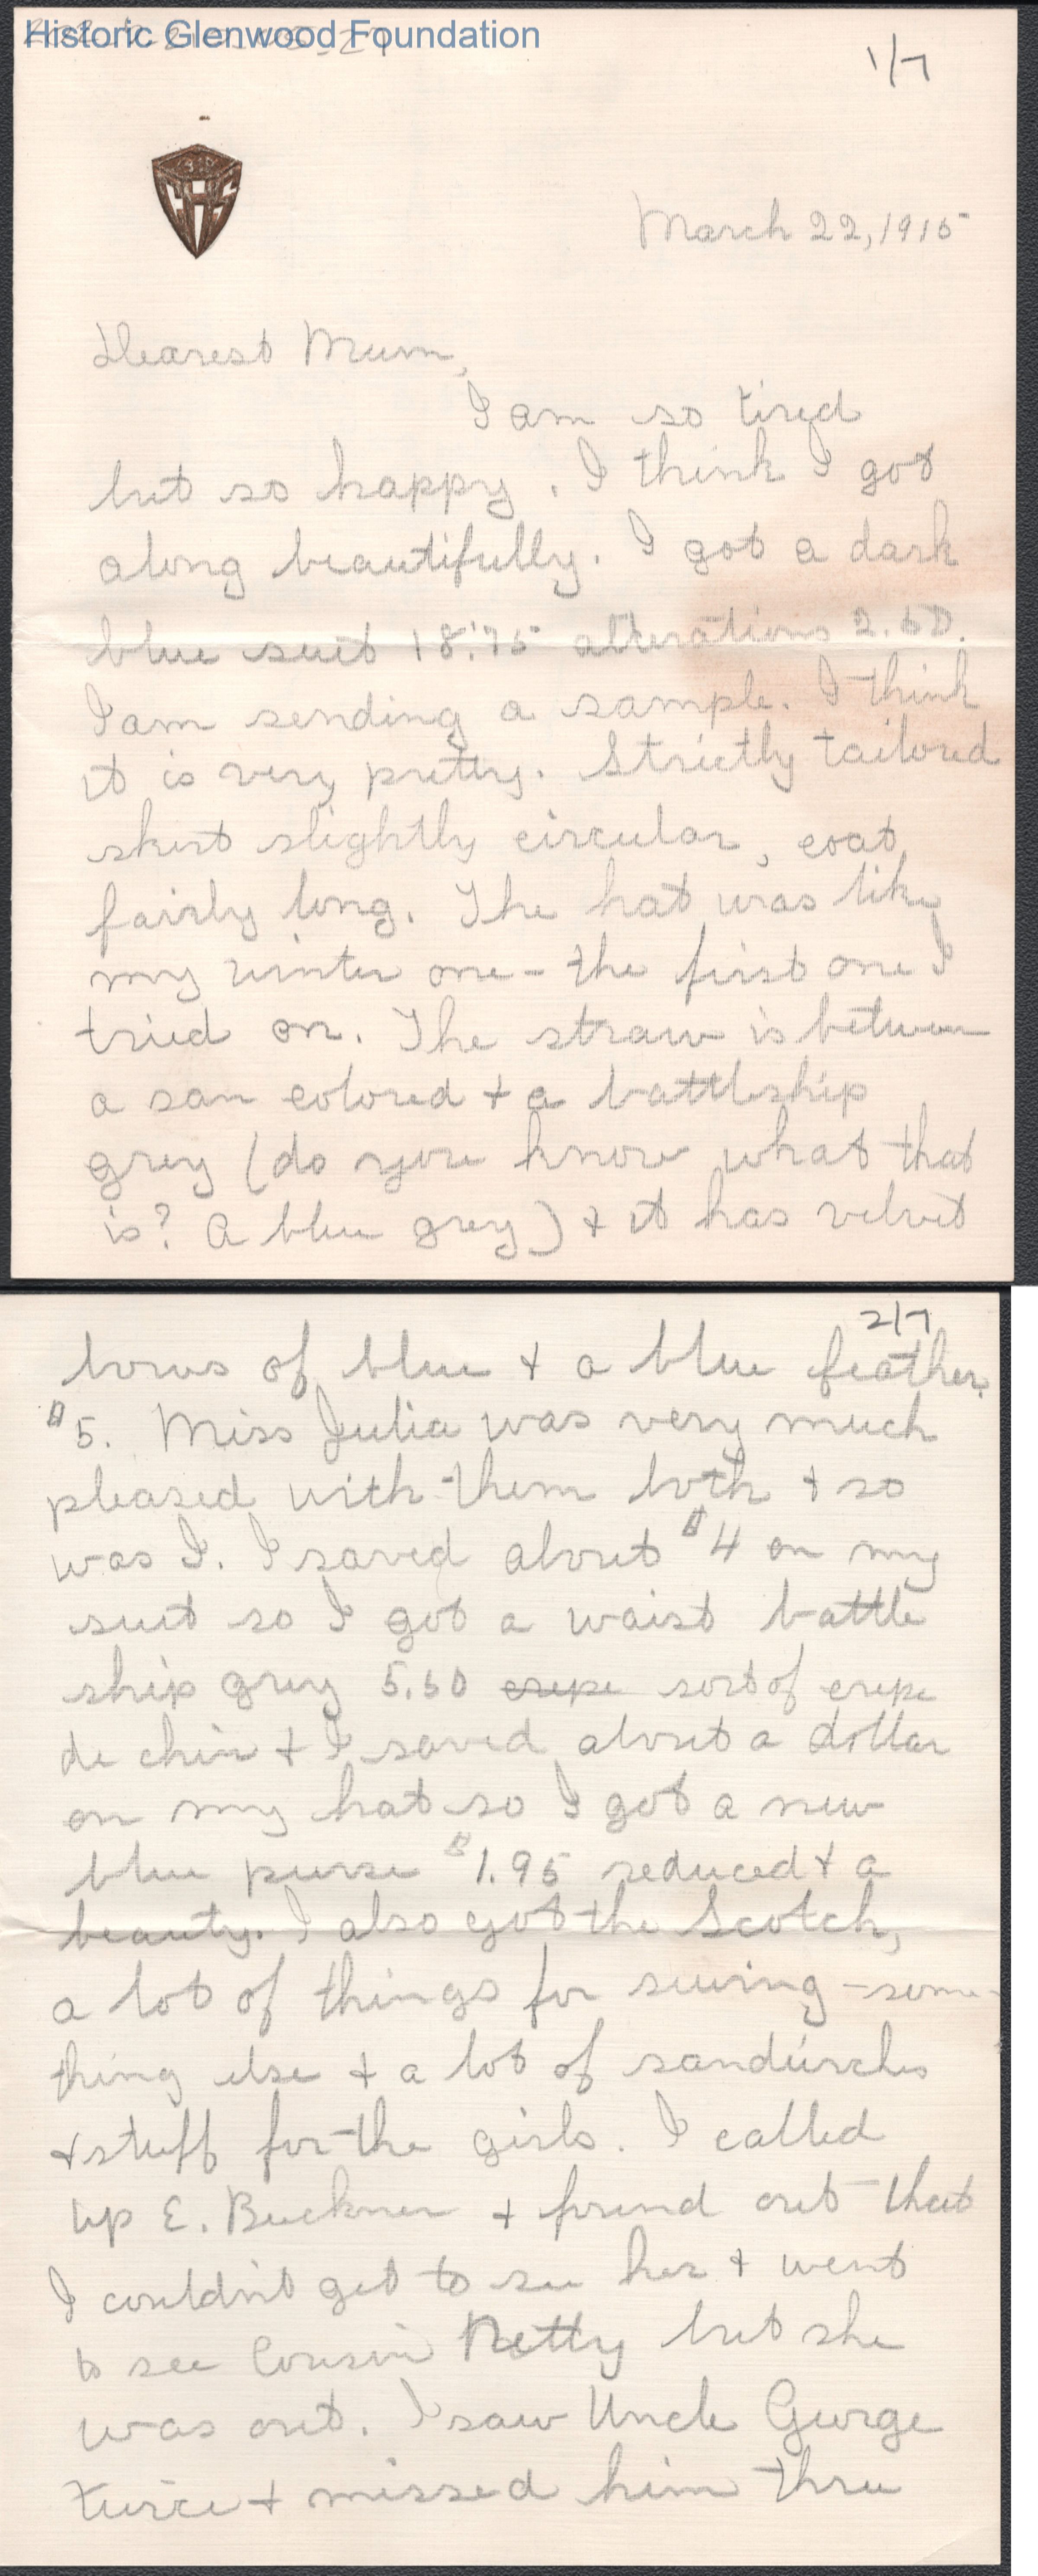 Historic Glenwood Foundation
1/7
March 22, 1915
Dearest Mum,
I am so tired
but so happy. I think I got
along beautifully. I got a dark
blue suit 18.75 alterations 2.50.
I am sending a sample. I think
it is very pretty. Strictly tailored
skirt slightly circular, coat
fairly long. The hat was like
my winter one - the first one I
tried on. The straw is between
a san colored + a battleship
grey (do you know what that
is? A blue grey) + it has velvet
2/7
bows of blue + a blue feather.
$5. Miss Julia was very much
pleased with them both + so
was I. I saved about $4 on my
suit so I got a waist battle
ship grey 5.50 crepe sort of crepe
de chin + I saved about a dollar
on my hat so I got a new
blue purse $1.95 reduced + a
beauty. I also got the Scotch,
a lot of things for sewing - some-
thing else + a lot of sandwiches
+ stuff for the girls. I called
up E. Buckner + found out that
I couldn't get to see her + went
to see Cousin Netty but she
was out. I saw Uncle George
twice + missed him thru